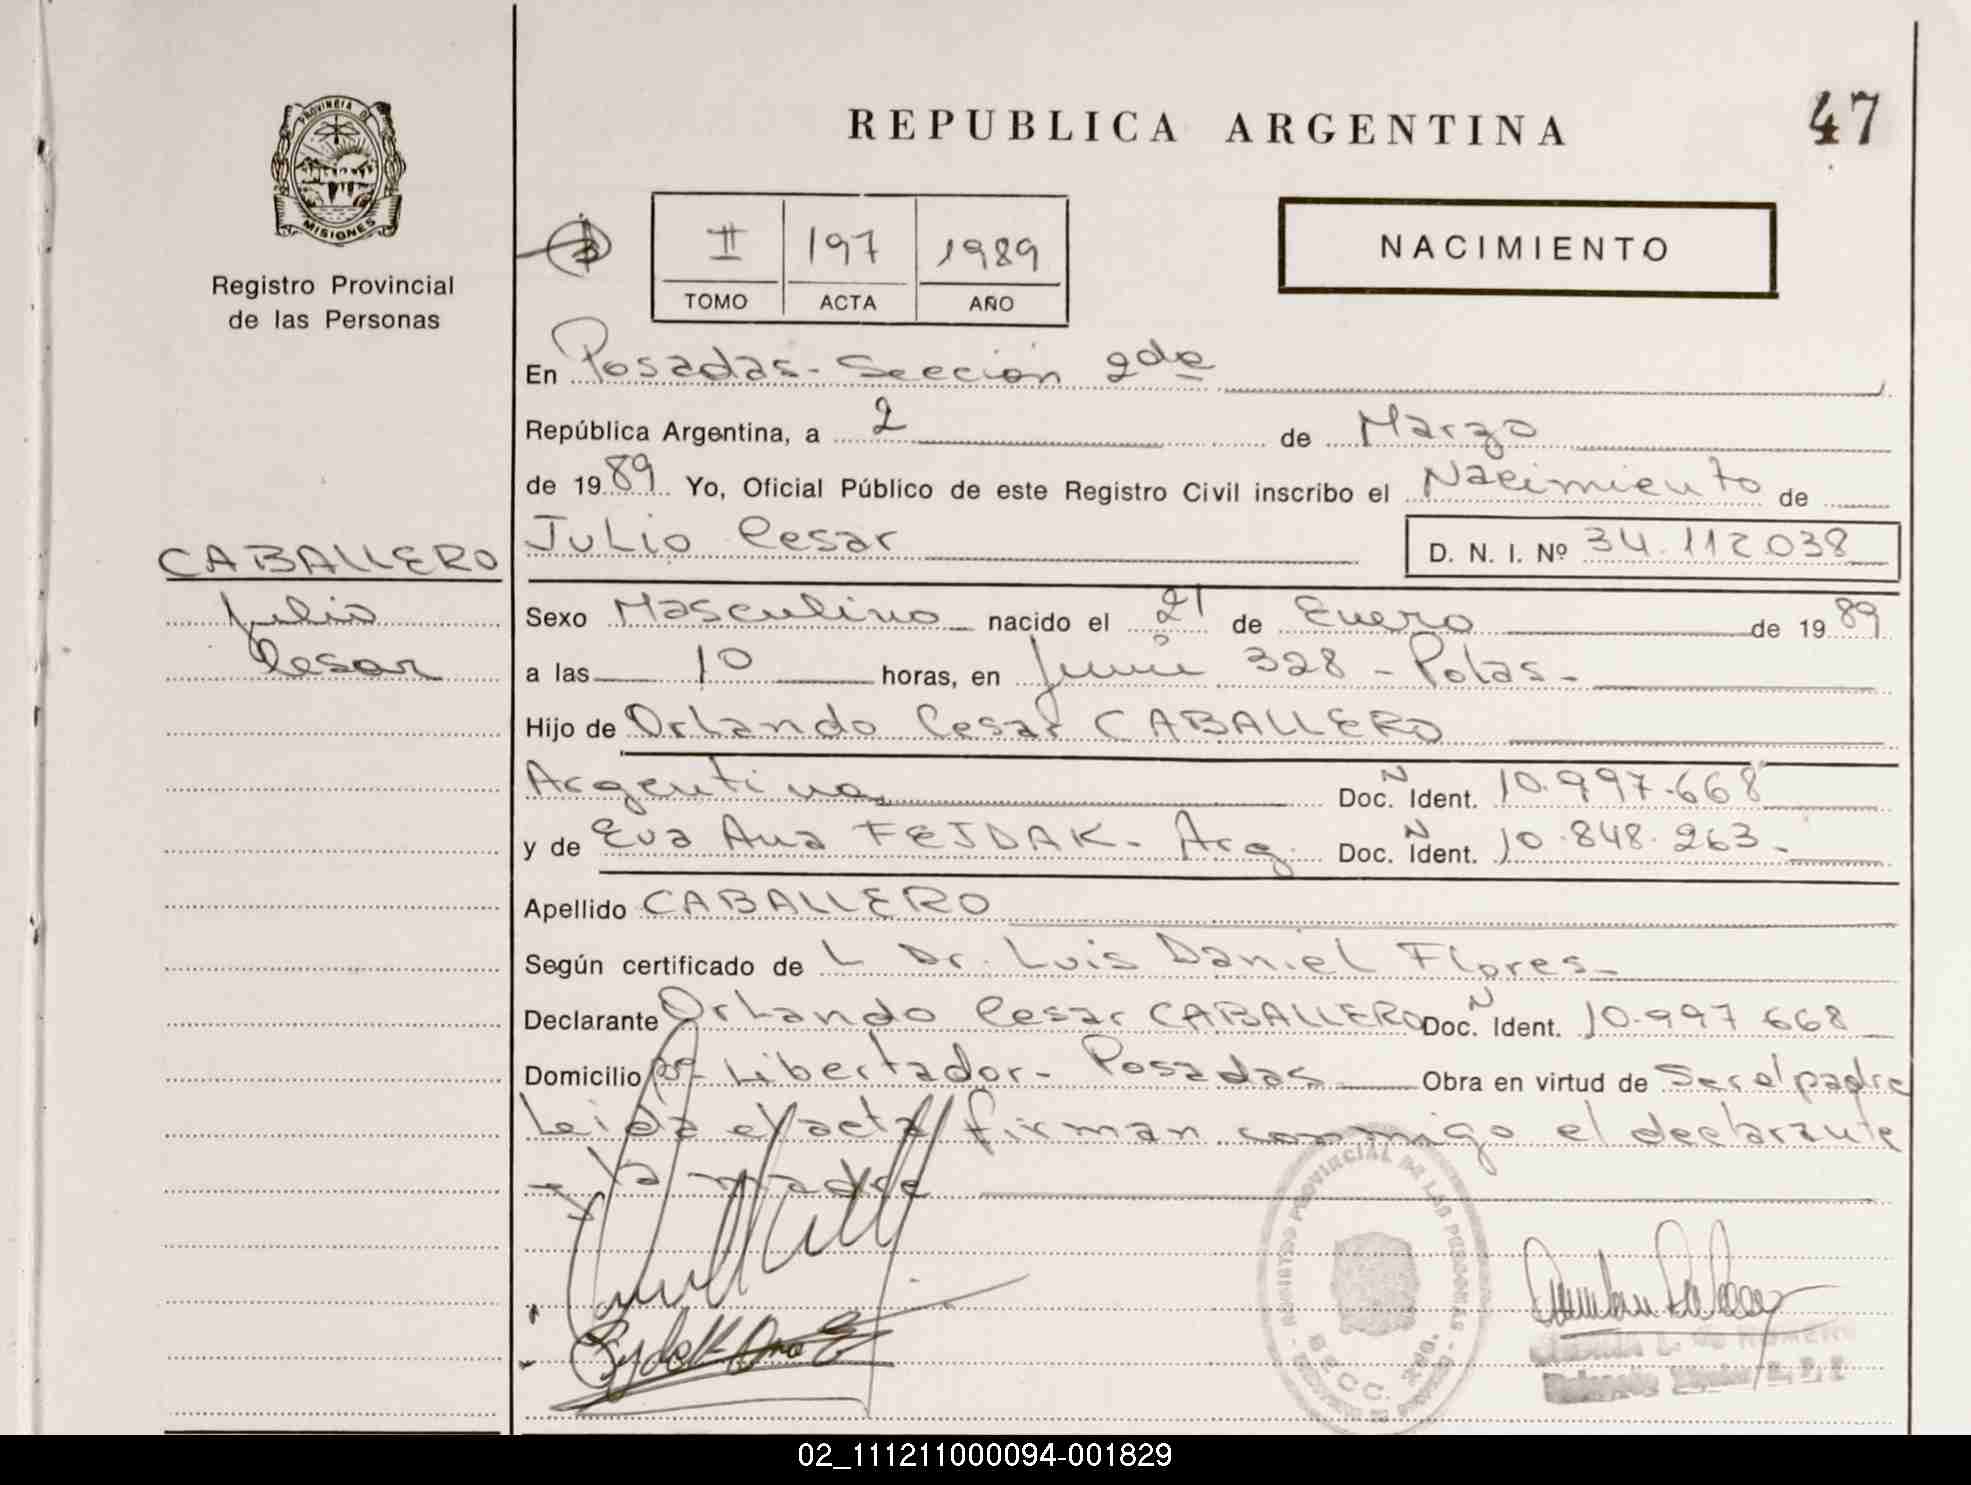 PROVINCIA DE
MISIONES
Registro Provincial
de las Personas
CABALLERO
Julio
Cesar
REPUBLICA ARGENTINA
47
II 197 1989
TOMO ACTA AÑO
NACIMIENTO
En Posadas - Sección 2da
República Argentina, a 2 de Marzo
de 1989 Yo, Oficial Público de este Registro Civil inscribo el Nacimiento de
Julio Cesar D. N. I. Nº 34.112.038
Sexo Masculino nacido el 21 de Enero de 1989
a las 10 horas, en Junín 328 - Pdas -
Hijo de Orlando Cesar CABALLERO
Argentino Doc. N Ident. 10.997.668
y de Eva Ana FEJDAK - Arg. Doc. N Ident. 10.848.263 -
Apellido CABALLERO
Según certificado de L Dr. Luis Daniel Flores -
Declarante Orlando Cesar CABALLERO Doc. N Ident. 10.997.668
Domicilio Libertador - Posadas Obra en virtud de Ser el padre
Leida el acta firman conmigo el declarante
y la madre
REGISTRO PROVINCIAL DE LAS PERSONAS
SECC. 2da.
02_111211000094-001829